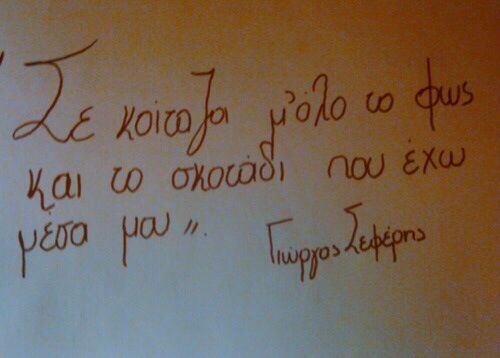 Σε κοίταζα μ'όλο το φως
και το σκοτάδι που έχω
μέσα μου ".
Γιώργος Σεφέρης